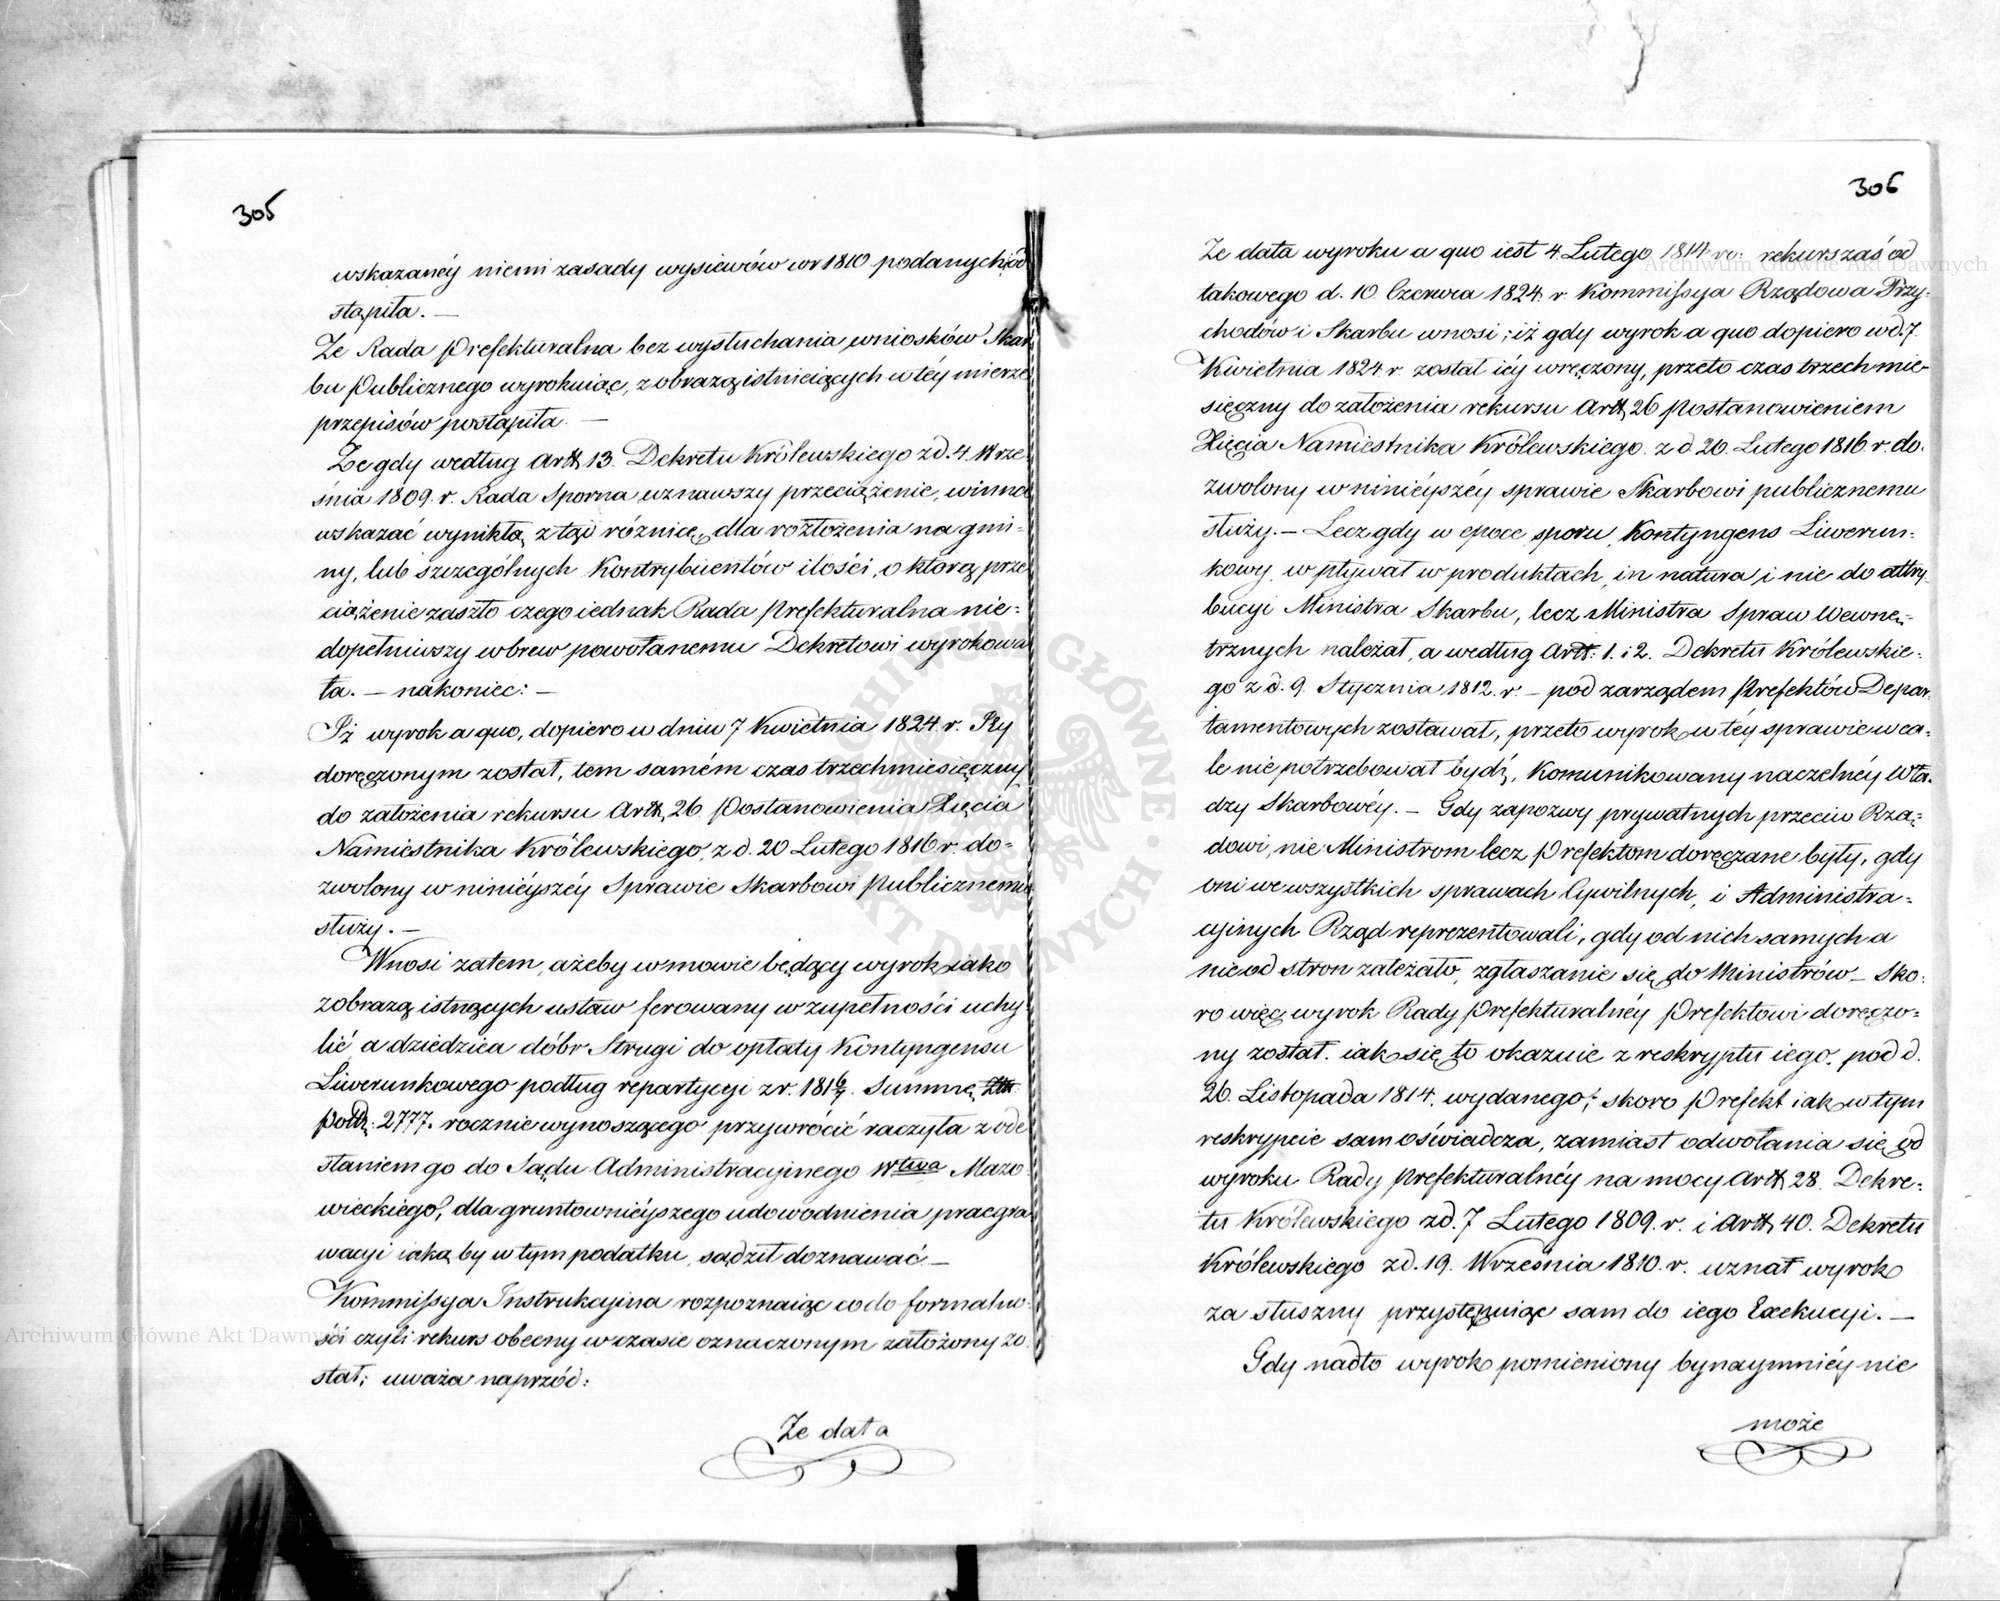 305
wskazanéy niemi zasady wysiewów w r 1810 podanych od
stąpiła. —
Że Rada Prefekturalna bez wysłuchania wniosków Skar
bu Publicznego wyrokuiąc, z obrazą istnieiących w téy mierze
przepisów postąpiła. —
Że gdy według Artt 13. Dekretu Królewskiego z d. 4. Wrze
śnia 1809. r. Rada Sporna uznawszy przeciążenie, winna
wskazać wynikłą ztąd różnicę, dla rozłożenia na gmi-
ny, lub szczególnych Kontrybuentów ilości, o którą prze
ciążenie zaszło czego iednak Rada Prefekturalna nie=
dopełniwszy wbrew powołanemu Dekretowi wyrokowa
ła. — nakoniec: —
Iż wyrok a quo, dopiero w dniu 7 Kwietnia 1824. r. Jéy
doręczonym został, tem samém czas trzechmiesięczny
do założenia rekursu Artt, 26. Postanowienia Xięcia
Namiestnika Królewskiego, z d. 20 Lutego 1816 r. do=
zwolony w ninieyszéy Sprawie Skarbowi Publicznemu
służy. —
Wnosi zatem, ażeby w mowie będący wyrok iako
z obrazą istnących ustaw ferowany w zupełności uchy
lić a dziedzica dóbr Strugi do opłaty Kontyngensu
Liwerunkowego podług repartycyi z r. 1816/7. Summę Złt:
Polh: 2777. rocznie wynoszącego przywrócić raczyła z ode
słaniem go do Sądu Administracyinego Wtwa Mazo
wieckiego, dla gruntownieyszego udowodnienia praegra
wacyi iaką by w tym podatku, sądził doznawać. —
Kommissya Instrukcyina rozpoznaiąc co do formalno=
ści czyli rekurs obecny w czasie oznaczonym założony zo
stał; uważa naprzód:
Że data
306
Że data wyroku a quo iest 4. Lutego 1814 ro: rekurs zaś od
takowego d. 10 Czerwca 1824. r. Kommissya Rządowa Przy-
chodów i Skarbu wnosi; iż gdy wyrok a quo dopiero w d. 7.
Kwietnia 1824 r. został iéy wręczony, przeto czas trzech mie-
sięczny do założenia rekursu Artt, 26 Postanowieniem
Xięcia Namiestnika Królewskiego. z d 20. Lutego 1816. r. do.
zwolony w ninieyszéy sprawie Skarbowi publicznemu
służy. — Lecz gdy w epoce sporu, Kontyngens Liwerun-
kowy, wpływał w produktach, in natura i nie do attry-
bucyi Ministra Skarbu, lecz Ministra Spraw Wewnę-
trznych należał, a według Artt: 1. i 2. Dekretu Królewskie=
go z d. 9. Stycznia 1812. r. — pod zarządem Prefektów Depar-
tamentowych zostawał, przeto wyrok w téy sprawie wca-
le nie potrzebował bydź, Komunikowany naczelnéy Wła-
dzy Skarbowéy. — Gdy zapozwy prywatnych przeciw Rzą=
dowi, nie Ministrom lecz Prefektom doręczane były, gdy
oni we wszystkich sprawach Cywilnych, i Administra=
cyinych Rząd reprezentowali, gdy od nich samych a
nie od stron zależało, zgłaszanie się do Ministrów — Sko=
ro więc wyrok Rady Prefekturalnéy Prefektowi doręczo=
ny został. iak się to okazuie z reskryptu iego. pod d.
26. Listopada 1814. wydanego; skoro Prefekt iak w tym
reskrypcie sam oświadcza, zamiast odwołania się od
wyroku Rady Prefekturalnéy na mocy Artt 28. Dekre=
tu Królewskiego z d. 7 Lutego 1809. r. i Artt, 40. Dekretu
Królewskiego z d. 19. Września 1810. r. uznał wyrok
za słuszny przystępuiąc sam do iego Exekucyi. —
Gdy nadto wyrok pomieniony bynaymniéy nie
może
Archiwum Główne Akt Dawnych
Archiwum Główne Akt Dawnych
ARCHIWUM GŁÓWNE AKT DAWNYCH